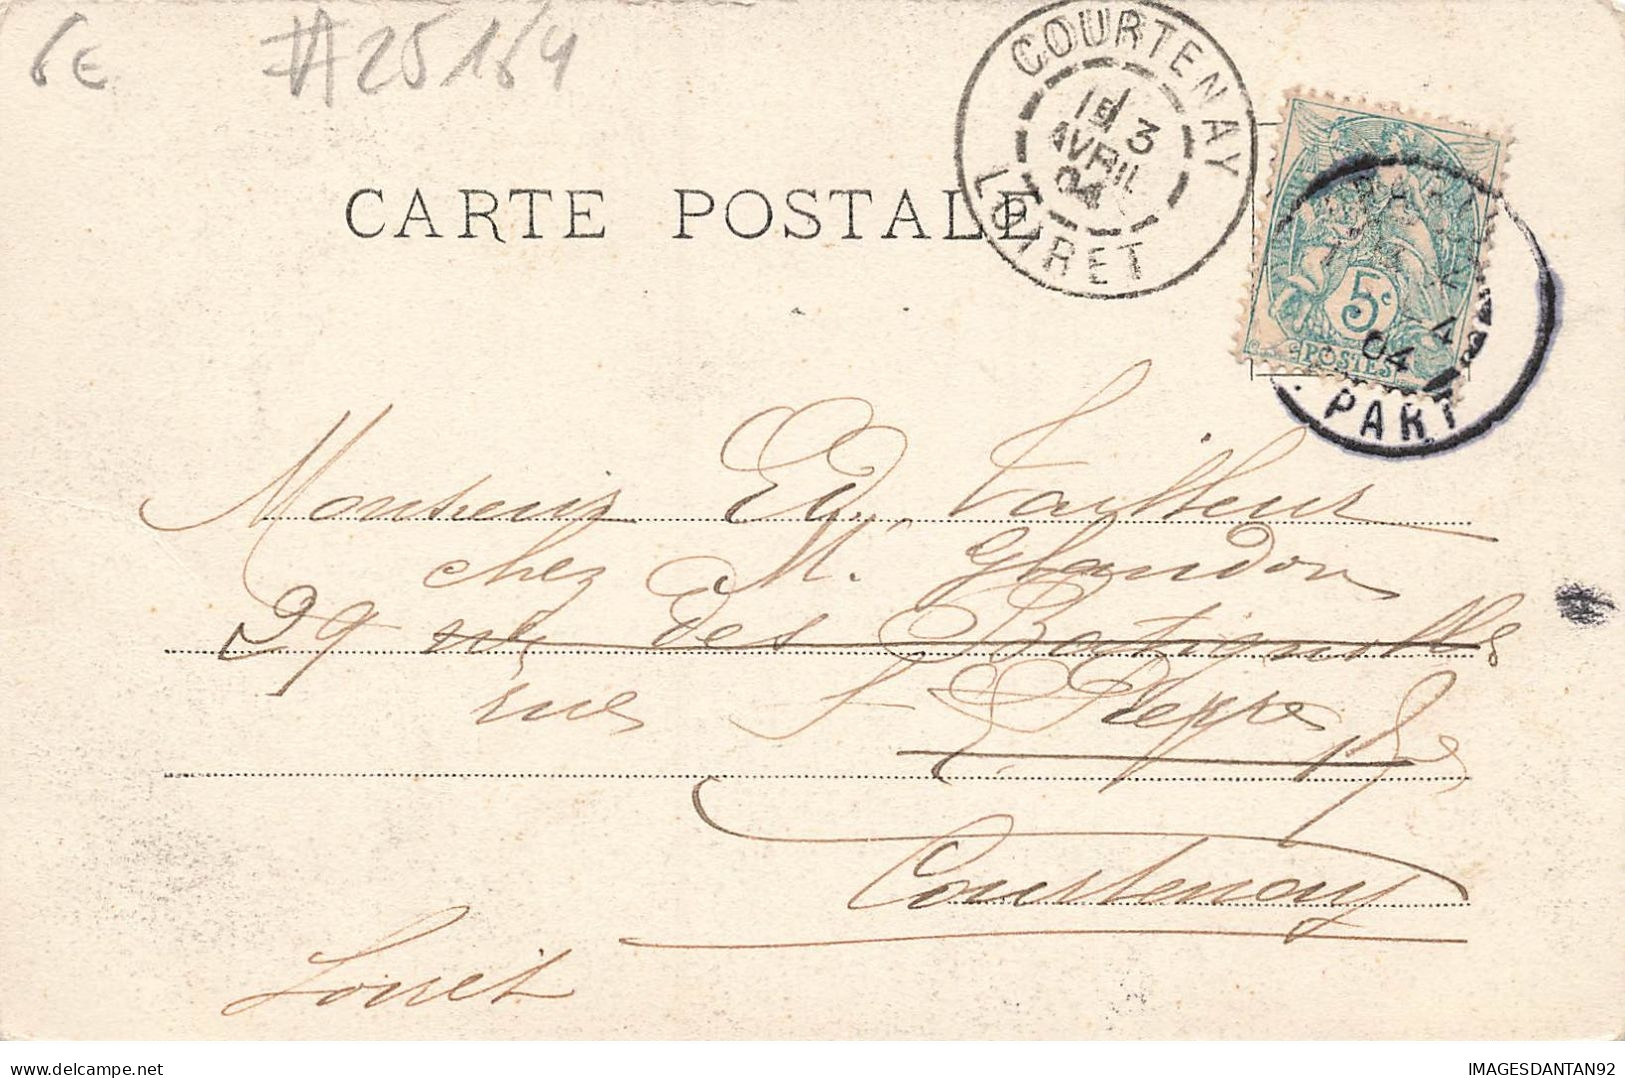 6E #25164
COURTENAY
1E 3
AVRIL
04
LOIRET
CARTE POSTALE
5c
POSTES
4
04
PART
Monsieur Ed. Tailleur
chez Mr Glandon
29 rue des Batignolles
rue St
Courtenay
Loiret
IMAGESDANTAN92